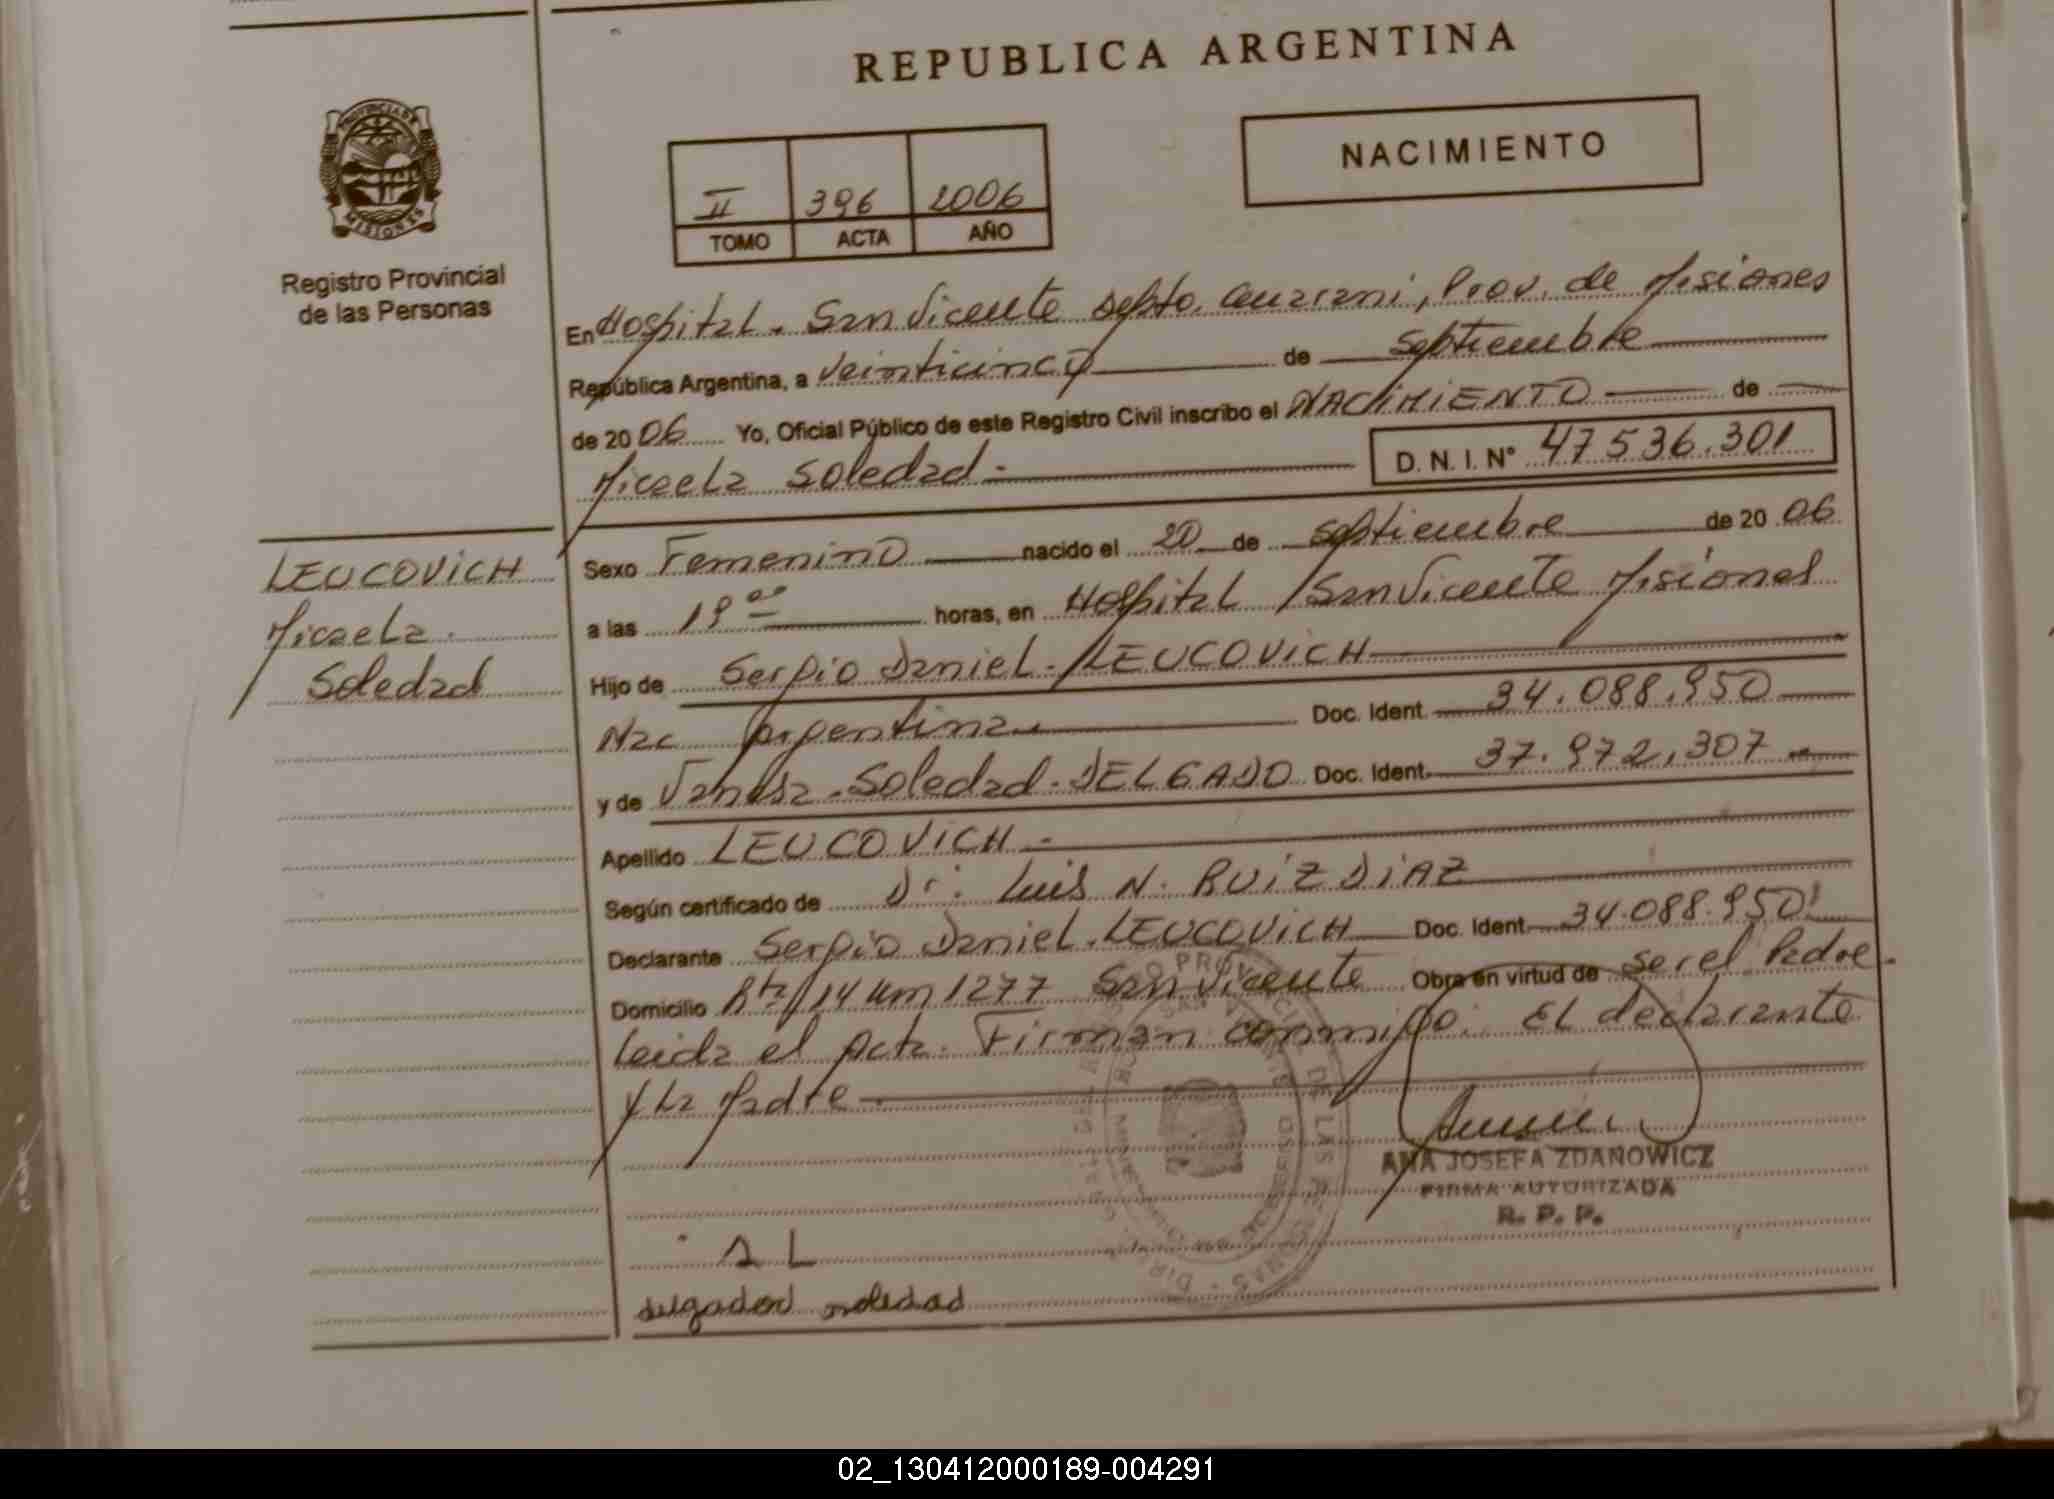 REPUBLICA ARGENTINA
PROVINCIA DE
MISIONES
Registro Provincial
de las Personas
NACIMIENTO
II 396 2006
TOMO ACTA AÑO
En Hospital. San Vicente Depto. Guarani, Prov. de Misiones
República Argentina, a veinticinco de Septiembre
de 2006 Yo, Oficial Público de este Registro Civil inscribo el NACIMIENTO de
Micaela Soledad.- D. N. I. N° 47536.301
LEUCOVICH
Micaela.
Soledad
Sexo Femenino nacido el 20 de Septiembre de 2006
a las 19 00 horas, en Hospital San Vicente Misiones
Hijo de Sergio Daniel. LEUCOVICH
Nac Argentina. Doc. Ident. 34.088.950
y de Vanesa. Soledad. DELGADO Doc. Ident. 37.972.307
Apellido LEUCOVICH.-
Según certificado de Dr. Luis N. RUIZ DIAZ
Declarante Sergio Daniel. LEUCOVICH Doc. Ident. 34.088.950
Domicilio Rta/14 Km 1277 San Vicente Obra en virtud de ser el Padre.
Leida el Acta. Firman conmigo. El declarante
y La Madre.
ANA JOSEFA ZDANOWICZ
FIRMA AUTORIZADA
R. P. P.
S L
soledad
02_130412000189-004291